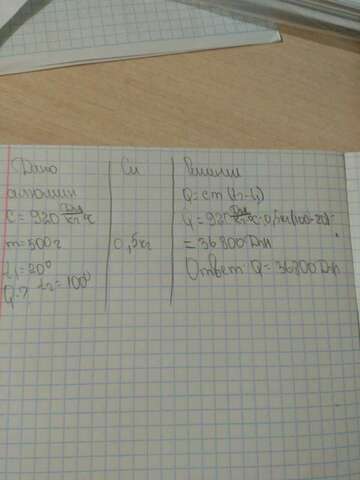 Дано
алюмин
C = 920 Дж/кг°C
m = 500 г
t₁ = 20°
t₂ = 100°
Q-?
Си
0,5 кг
Решение
Q = cm (t₂ - t₁)
Q = 920 Дж/кг°C · 0,5кг(100-20)=
= 36800 Дж
Ответ: Q = 36800 Дж.